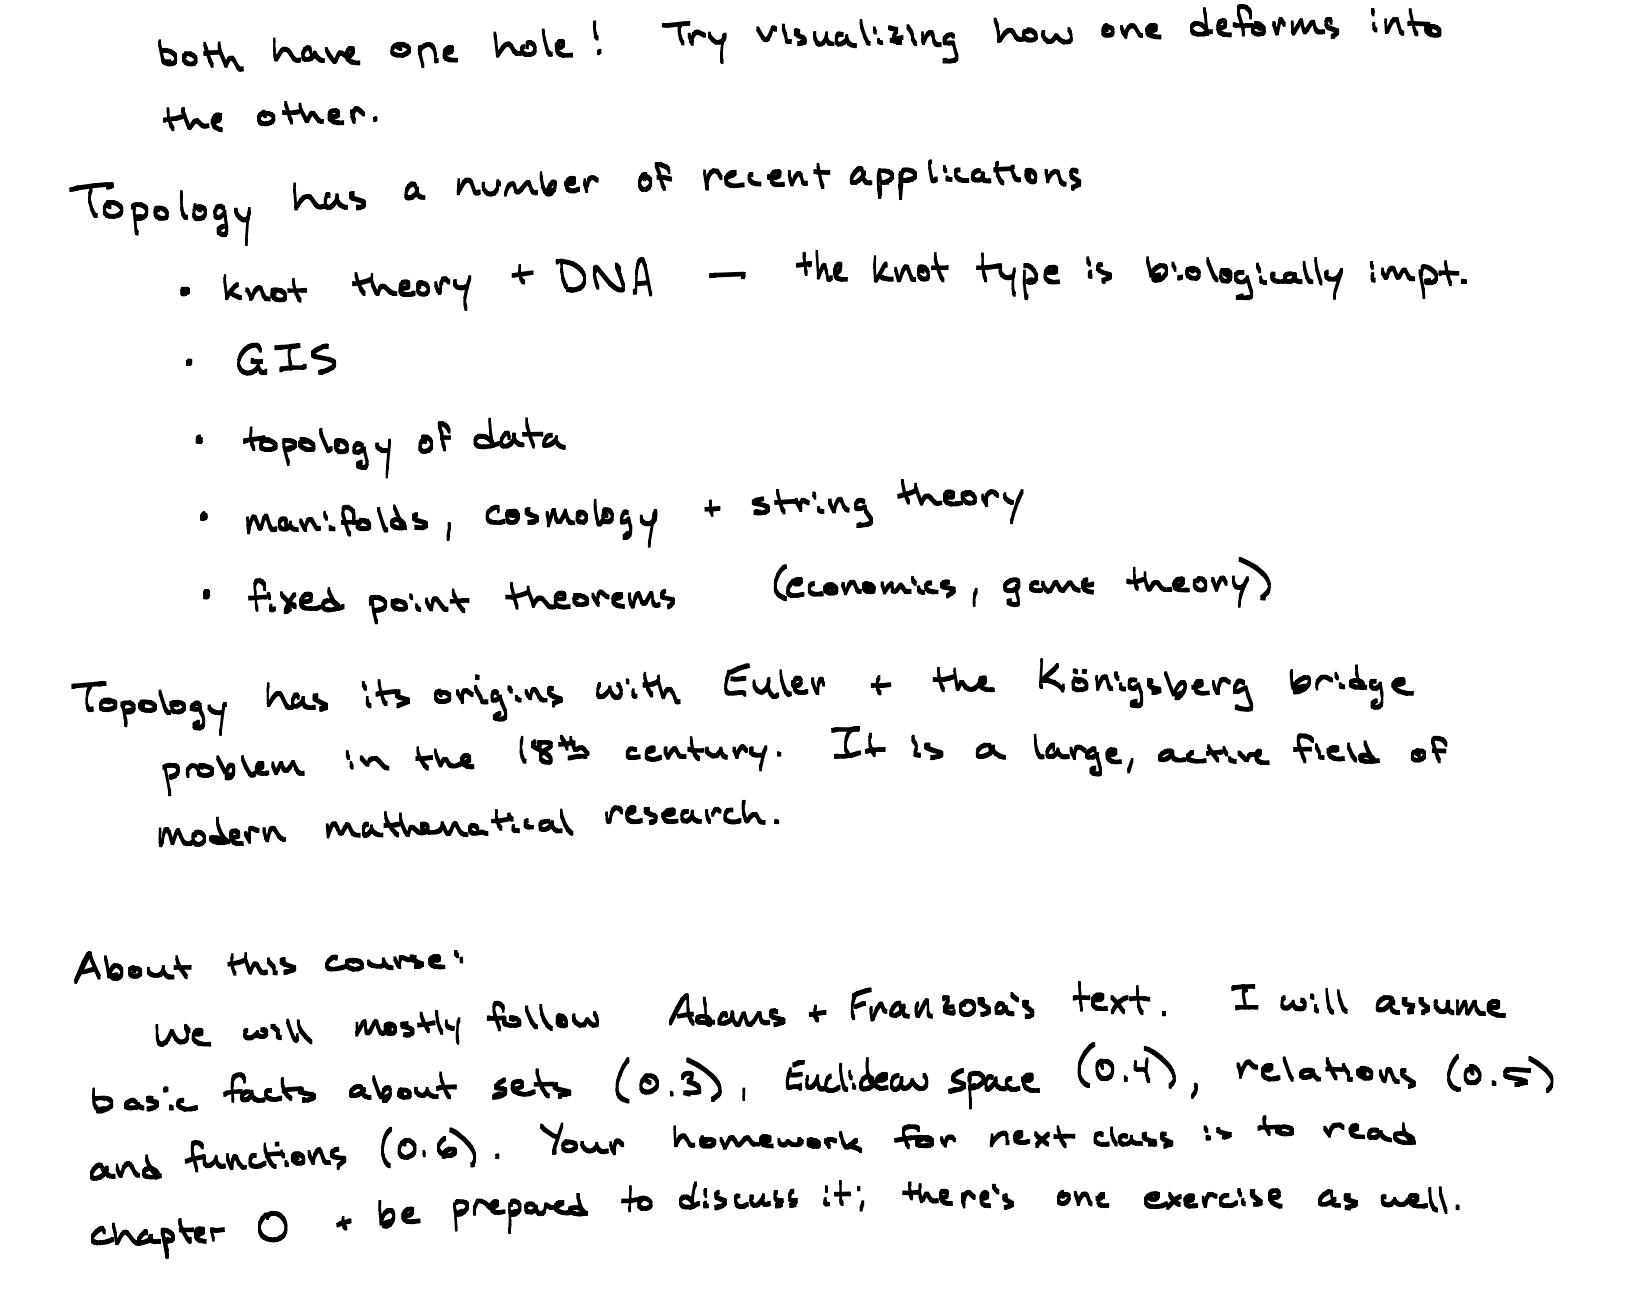 both have one hole! Try visualizing how one deforms into
the other.
Topology has a number of recent applications
• knot theory + DNA — the knot type is biologically impt.
• GIS
• topology of data
• manifolds, cosmology + string theory
• fixed point theorems (economics, game theory)
Topology has its origins with Euler + the Königsberg bridge
problem in the 18th century. It is a large, active field of
modern mathematical research.
About this course:
We will mostly follow Adams + Franzosa's text. I will assume
basic facts about sets (0.3), Euclidean space (0.4), relations (0.5)
and functions (0.6). Your homework for next class is to read
chapter 0 + be prepared to discuss it; there's one exercise as well.